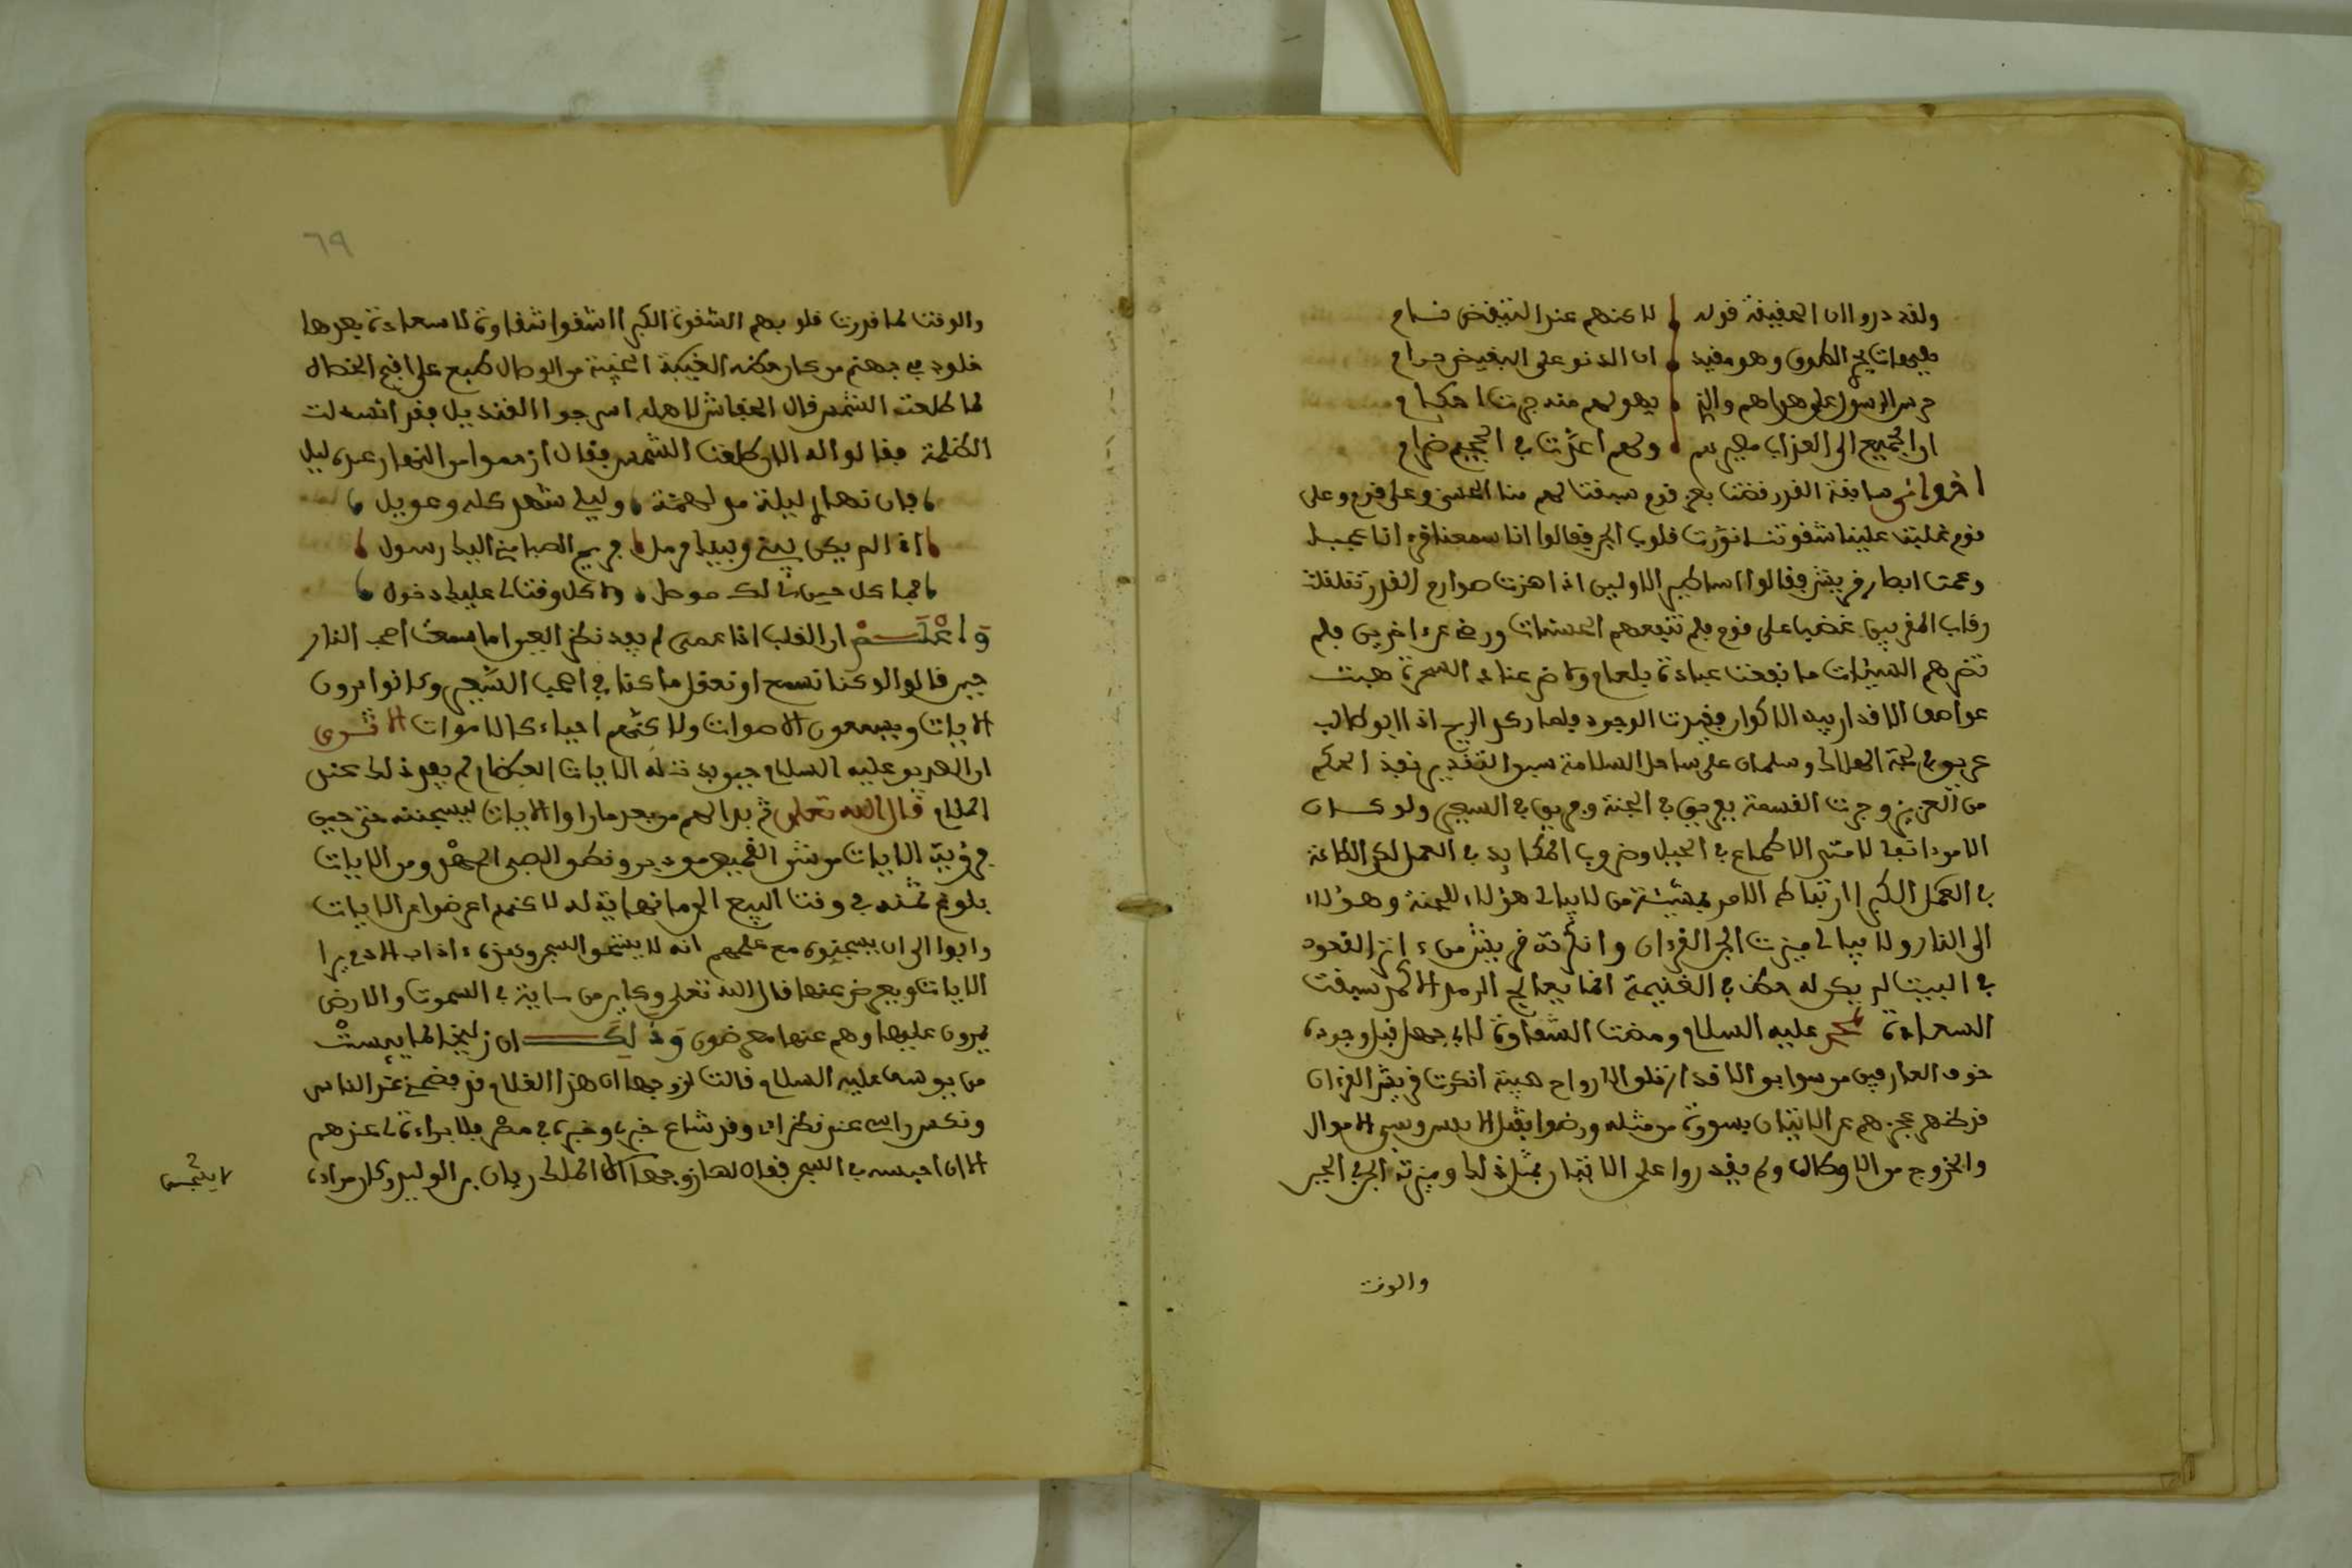 ولقد دروا ان الحقيقة قوله لا كنهم عند التبغض نيام
هيهات يجد الطروق وهو مقيد ان الدنو على البغيض حرام
حرس الرسول على هداهم والذي يهو لهم منه جرت احكام
ان الجميع الى العذاب مصيرهم ولهم اعدت في الجحيم ضرام
سابقة القدر قضت بعز قوم سبقت لهم منا الحسنى وعلى قوم وعلى
قوم غلبت علينا شقوتنا نورت قلوب الجن فقالوا انا سمعنا قرءانا عجبا
وعمت ابصار قريش فقالوا اساطير الاولين اذا هزت صوارم القدر تقلقلت
رقاب المقربين غضب على قوم فلم تنفعهم الحسنات ورضي عن اخرين فلم
تضرهم السيئات ما نفعت عبادة بلعام ولا ضر عناد السحرة هبت
عواصف الاقدار بيد الاكوار الوجود فلما ركد الريح اذا ابو طالب
غريق في لجة الهلاك وسلمان على ساحل السلامة سبق التقدير نفذ الحكم
من العزيز وجرت القسمة فريق في الجنة وفريق في السعير ولو كان
في العمل الكبرا ارتباط الامر بمشيئة من لا يبالي هؤلاء للجنة وهؤلاء
الى النار ولا يبالي ميزت الجن القرءان وانكرته قريش من ءاثر القعود
في البيت لم يكن له حظ في الغنيمة انما يعالج الرمد الاكمه سبقت
السعادة لمحمد عليه السلام ومضت الشقاوة لابي جهل قبل وجوده
خوف العارفين من سوابق الاقدار قلق الارواح هيبة انكرت قريش القرءان
قد ظهر عجزهم عن الاتيان بسورة من مثله ورضوا بقتل الانفس وسبي الاموال
والخروج من الاوطان ولم يقدروا على الاتيان بمثل ذلك وميزته الجن في الحين
والوقت
٦٩
والوقت لما قدرت قلوبهم الشقوة الكبرا اشقوا شقاوة لا سعادة بعدها
خلود في جهنم من كان حظه الخيبة الوصال طبع على اقبح الخصال
لما طلعت الشمس قال الخفاش لاهله اسرجوا القنديل فقد انسدلت
الظلمة فقالوا له الان طلعت الشمس فقال ان النهار عندي ليل
فان نهاري ليلة مدلهمة وليلي شهر كله وعويل
اذا لم يكن بيني وبينك مرسل فريح الصبا مني اليك رسول
فما كل حين لي لك موصل ولا كل وقت لي عليك دخول
واعلم ان القلب اذا عمى لم يفد نظر العين اما سمعت اصحاب النار
حين قالوا لو كنا نسمع او نعقل ما كنا في اصحاب السعير وكانوا يرون
الايات ويسمعون الاصوات ولا كنهم احياء كالاموات الا ترى
ان الصديق عليه السلام حين بدت له الايات العظام لم يفد ذلك عند
قال الله تعلى ثم بدا لهم من بعد ما راوا الايات ليسجننه حتى حين
فرؤية الايات من شق القميص من دبر ونطق الصبي في المهد ومن الايات
بلوغ ثمنه في وقت البيع الى ما نهاية له لا كنهم اعرضوا عن الايات
وابوا الا ان يسجنوه مع علمهم انه لا يستحق السجن
الايات ويعرض عنها قال الله تعلى وكاين من ءاية في السموت والارض
يمرون عليها وهم عنها معرضون وذلك ان زليخا لما يئست
من يوسف عليه السلام قالت لزوجها ان هذا الغلام قد فضحني عند الناس
ونكس راسي عند نظراي وقد شاع خبري وخبره في مصر فلا براءة لي عندهم
الا ان احبسه في السجن فقال لها زوجها ان الملك ريان بن الوليد وكان مراده